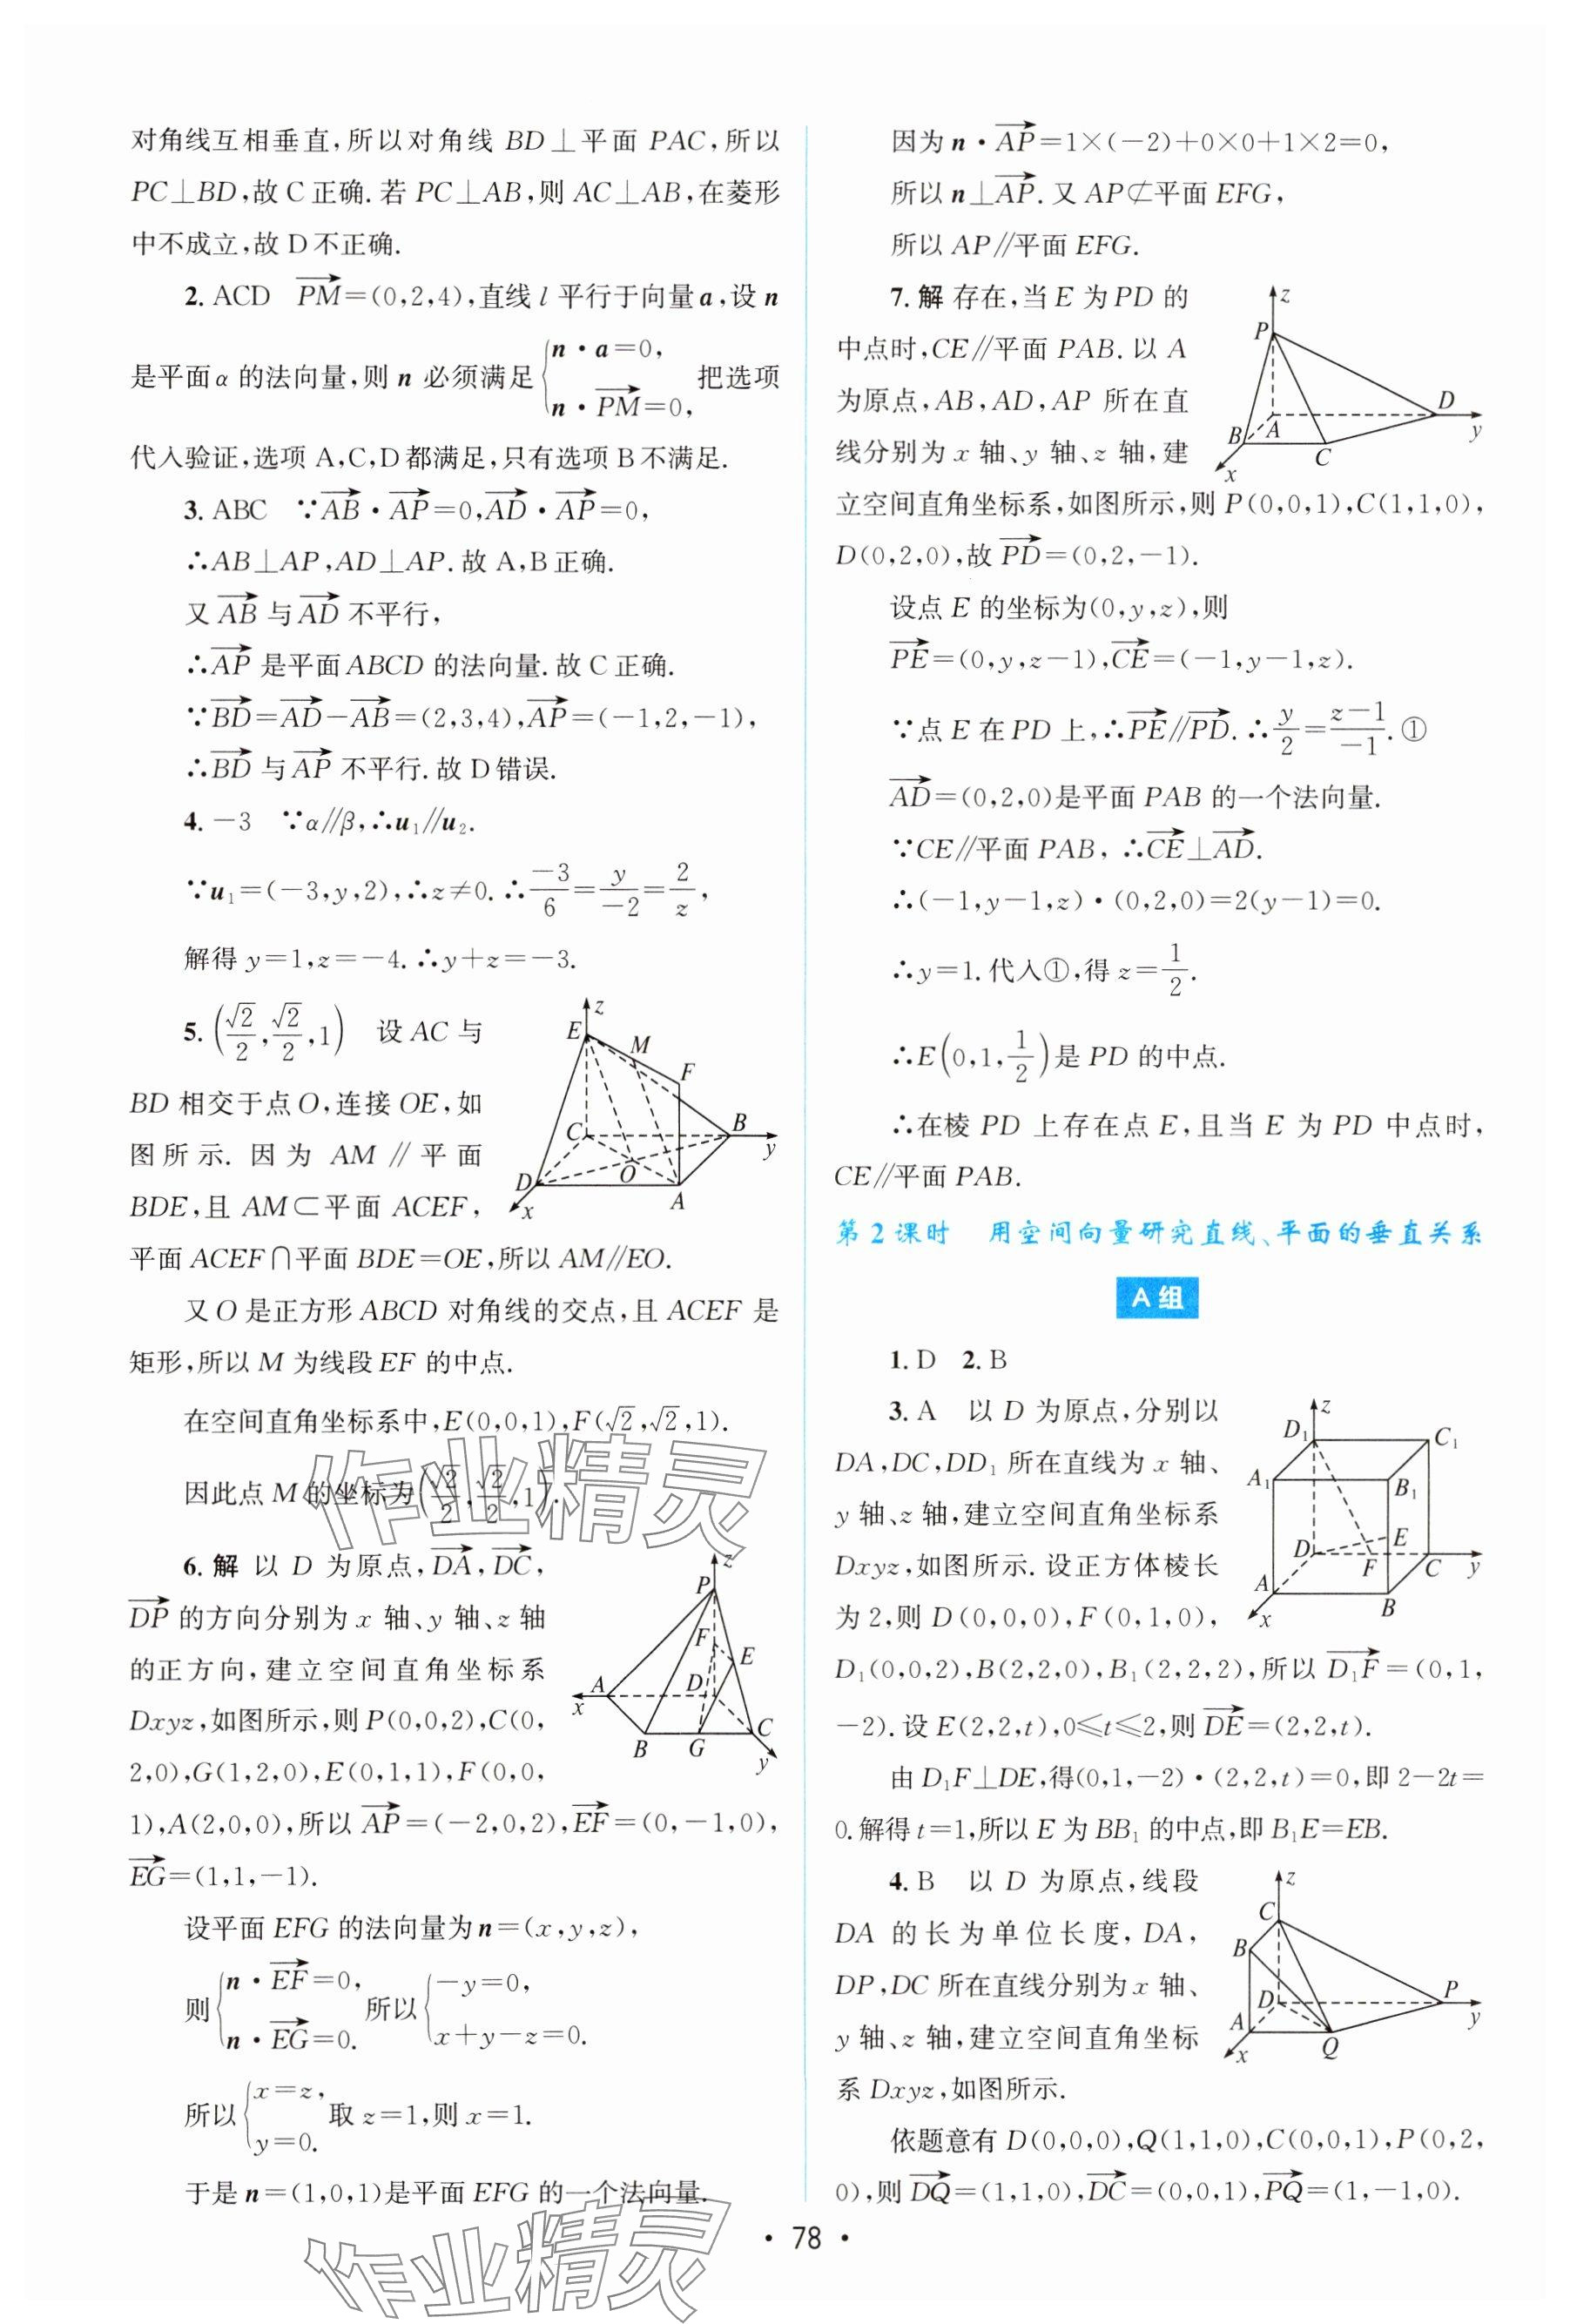 对角线互相垂直,所以对角线 BD⊥平面 PAC,所以
PC⊥BD,故 C 正确. 若 PC⊥AB,则 AC⊥AB,在菱形
中不成立,故 D 不正确.
2. ACD $\overrightarrow{PM}$=(0,2,4),直线 l 平行于向量 a,设 n
是平面 α 的法向量,则 n 必须满足 $\begin{cases} n·a=0, \\ n·\overrightarrow{PM}=0, \end{cases}$ 把选项
代入验证,选项 A,C,D 都满足,只有选项 B 不满足.
3. ABC ∵$\overrightarrow{AB}$·$\overrightarrow{AP}$=0,$\overrightarrow{AD}$·$\overrightarrow{AP}$=0,
∴AB⊥AP,AD⊥AP. 故 A,B 正确.
又 $\overrightarrow{AB}$ 与 $\overrightarrow{AD}$ 不平行,
∴$\overrightarrow{AP}$ 是平面 ABCD 的法向量. 故 C 正确.
∵$\overrightarrow{BD}$=$\overrightarrow{AD}$−$\overrightarrow{AB}$=(2,3,4),$\overrightarrow{AP}$=(−1,2,−1),
∴$\overrightarrow{BD}$ 与 $\overrightarrow{AP}$ 不平行. 故 D 错误.
4. −3 ∵α∥β,∴u₁∥u₂.
∵u₁=(−3,y,2),∴z≠0. ∴$\frac{-3}{6}=\frac{y}{-2}=\frac{2}{z}$,
解得 y=1,z=−4. ∴y+z=−3.
5. $\left(\frac{\sqrt{2}}{2},\frac{\sqrt{2}}{2},1\right)$ 设 AC 与
BD 相交于点 O,连接 OE,如
图所示. 因为 AM∥平面
BDE,且 AM⊂平面 ACEF,
平面 ACEF∩平面 BDE=OE,所以 AM∥EO.
z
E
M
F
C
B
y
D
O
x
A
又 O 是正方形 ABCD 对角线的交点,且 ACEF 是
矩形,所以 M 为线段 EF 的中点.
在空间直角坐标系中,E(0,0,1),F($\sqrt{2}$,$\sqrt{2}$,1).
因此点 M 的坐标为 $\left(\frac{\sqrt{2}}{2},\frac{\sqrt{2}}{2},1\right)$.
作业精灵
6. 解 以 D 为原点,$\overrightarrow{DA}$,$\overrightarrow{DC}$,
$\overrightarrow{DP}$ 的方向分别为 x 轴、y 轴、z 轴
的正方向,建立空间直角坐标系
Dxyz,如图所示,则 P(0,0,2),C(0,
2,0),G(1,2,0),E(0,1,1),F(0,0,
1),A(2,0,0),所以 $\overrightarrow{AP}$=(−2,0,2),$\overrightarrow{EF}$=(0,−1,0),
$\overrightarrow{EG}$=(1,1,−1).
z
P
F
E
A
D
x
B
G
C
y
设平面 EFG 的法向量为 n=(x,y,z),
则 $\begin{cases} n·\overrightarrow{EF}=0, \\ n·\overrightarrow{EG}=0. \end{cases}$ 所以 $\begin{cases} -y=0, \\ x+y-z=0. \end{cases}$
所以 $\begin{cases} x=z, \\ y=0. \end{cases}$ 取 z=1,则 x=1.
于是 n=(1,0,1)是平面 EFG 的一个法向量.
作业精灵
因为 n·$\overrightarrow{AP}$=1×(−2)+0×0+1×2=0,
所以 n⊥$\overrightarrow{AP}$. 又 AP⊄平面 EFG,
所以 AP∥平面 EFG.
7. 解 存在,当 E 为 PD 的
中点时,CE∥平面 PAB. 以 A
为原点,AB,AD,AP 所在直
线分别为 x 轴、y 轴、z 轴,建
立空间直角坐标系,如图所示,则 P(0,0,1),C(1,1,0),
D(0,2,0),故 $\overrightarrow{PD}$=(0,2,−1).
z
P
D
B
A
y
C
x
设点 E 的坐标为(0,y,z),则
$\overrightarrow{PE}$=(0,y,z−1),$\overrightarrow{CE}$=(−1,y−1,z).
∵点 E 在 PD 上,∴$\overrightarrow{PE}$∥$\overrightarrow{PD}$. ∴$\frac{y}{2}=\frac{z-1}{-1}$. ①
$\overrightarrow{AD}$=(0,2,0)是平面 PAB 的一个法向量.
∵CE∥平面 PAB, ∴$\overrightarrow{CE}$⊥$\overrightarrow{AD}$.
∴(−1,y−1,z)·(0,2,0)=2(y−1)=0.
∴y=1. 代入①,得 z=$\frac{1}{2}$.
∴E$\left(0,1,\frac{1}{2}\right)$是 PD 的中点.
∴在棱 PD 上存在点 E,且当 E 为 PD 中点时,
CE∥平面 PAB.
第 2 课时 用空间向量研究直线、平面的垂直关系
A 组
1. D 2. B
3. A 以 D 为原点,分别以
DA,DC,DD₁ 所在直线为 x 轴、
y 轴、z 轴,建立空间直角坐标系
Dxyz,如图所示. 设正方体棱长
为 2,则 D(0,0,0),F(0,1,0),
D₁(0,0,2),B(2,2,0),B₁(2,2,2),所以 $\overrightarrow{D_1F}$=(0,1,
−2). 设 E(2,2,t),0≤t≤2,则 $\overrightarrow{DE}$=(2,2,t).
z
D₁
C₁
A₁
B₁
D
E
F
C
y
A
x
B
由 D₁F⊥DE,得(0,1,−2)·(2,2,t)=0,即 2−2t=
0. 解得 t=1,所以 E 为 BB₁ 的中点,即 B₁E=EB.
4. B 以 D 为原点,线段
DA 的长为单位长度,DA,
DP,DC 所在直线分别为 x 轴、
y 轴、z 轴,建立空间直角坐标
系 Dxyz,如图所示.
z
C
B
D
P
A
y
x
Q
依题意有 D(0,0,0),Q(1,1,0),C(0,0,1),P(0,2,
0),则 $\overrightarrow{DQ}$=(1,1,0),$\overrightarrow{DC}$=(0,0,1),$\overrightarrow{PQ}$=(1,−1,0).
· 78 ·